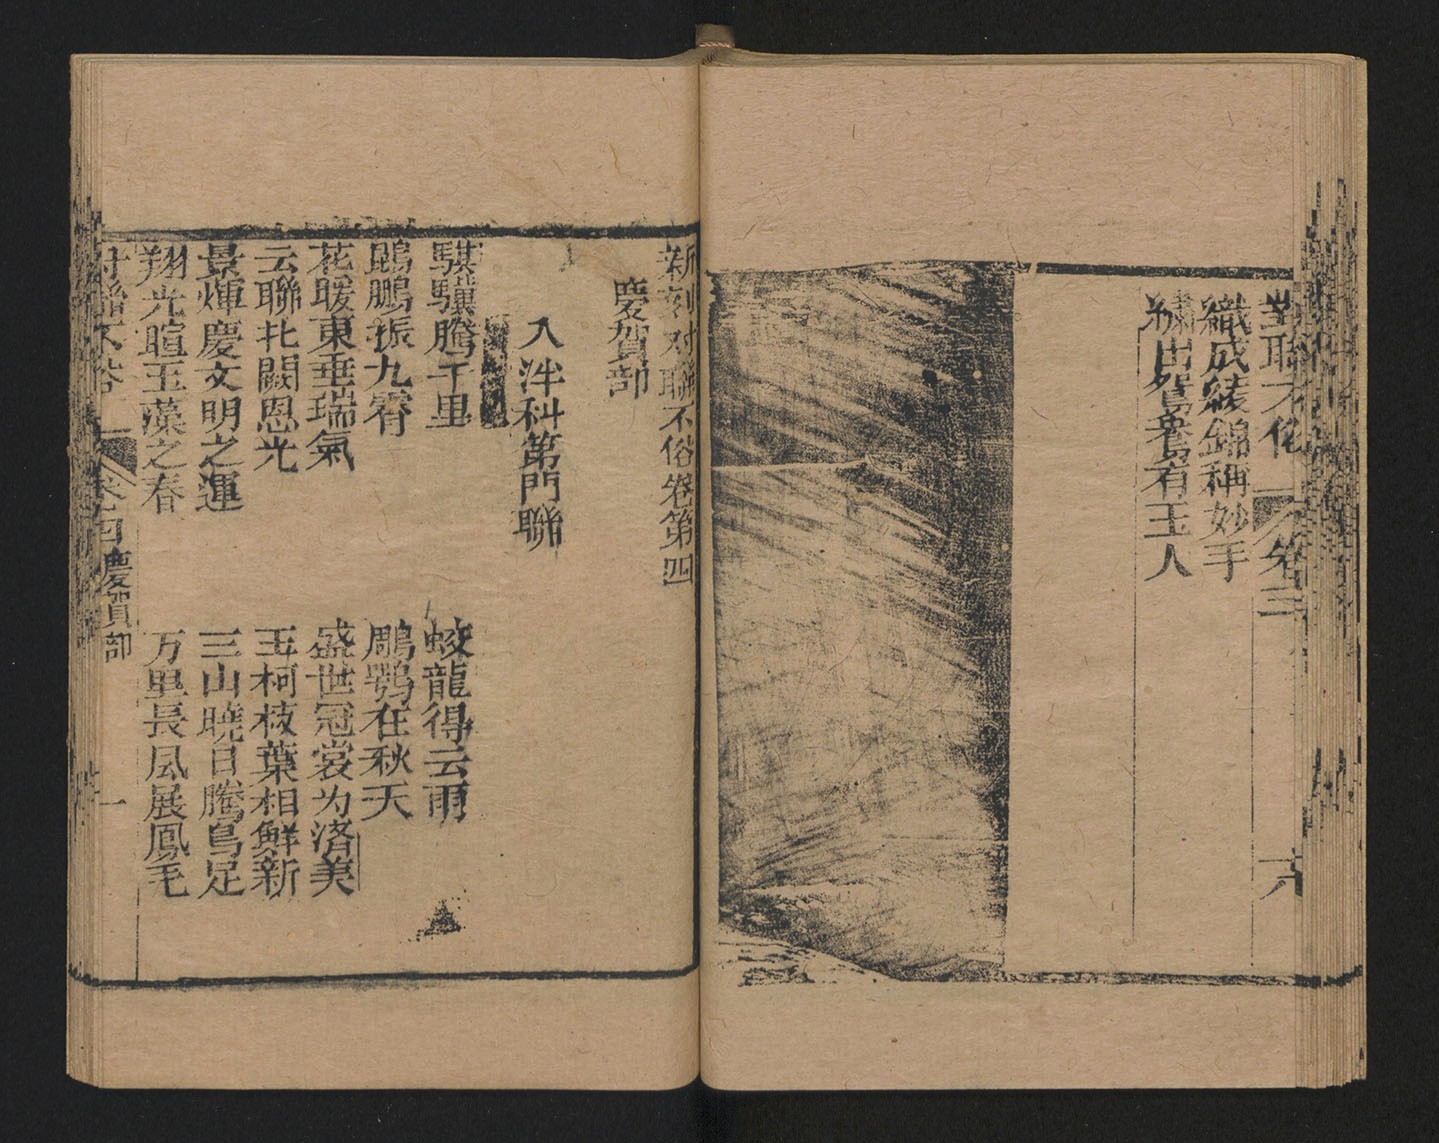 對聯不俗 卷三 六
織成綾錦稱妙手
繡出鴛鴦有玉人
新刻对聯不俗卷第四
慶賀部
入泮科第門聯
騏驥騰千里
蛟龍得云雨
鵾鵬振九霄
鵰鶚在秋天
花暖東垂瑞氣
盛世冠裳为济美
云聯北闕恩光
玉柯枝葉相鮮新
景煇慶文明之運
三山曉日騰鳥足
翔光暄玉藻之春
万里長风展鳳毛
对聯不俗 卷四 慶賀部 一